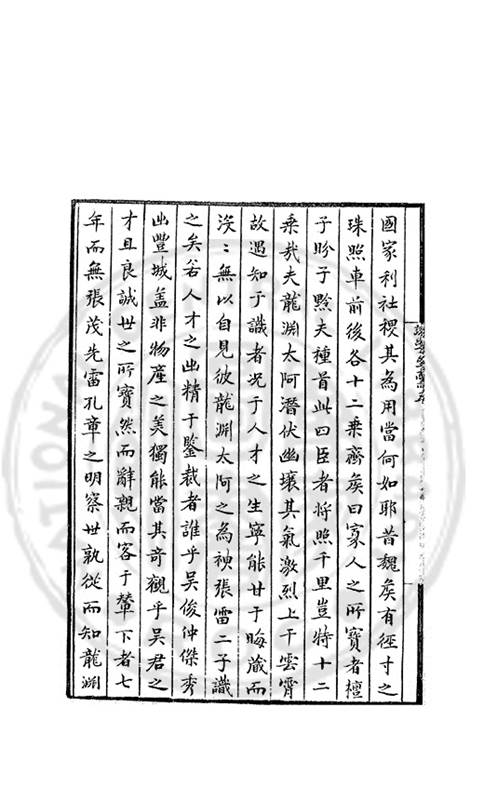 國家利社稷其為用當何如耶昔魏矦有徑寸之
珠照車前後各十二乗齊矦曰寡人之所寶者檀
子盻子黔夫種首此四臣者將照千里豈特十二
乗哉夫龍淵太阿潛伏幽壤其氣激烈上干雲霄
故遇知于識者况于人才之生寧能甘于晦蔵而
沒〻無以自見彼龍淵太阿之為神張雷二子識
之矣若人才之出精于鑒裁者誰乎吴俊仲傑秀
出豐城盖非物産之美獨能當其奇觀乎吴君之
才且良誠世之所寶然而辭親而客于輦下者七
年而無張茂先雷孔章之明察世孰從而知龍淵
NATIONAL